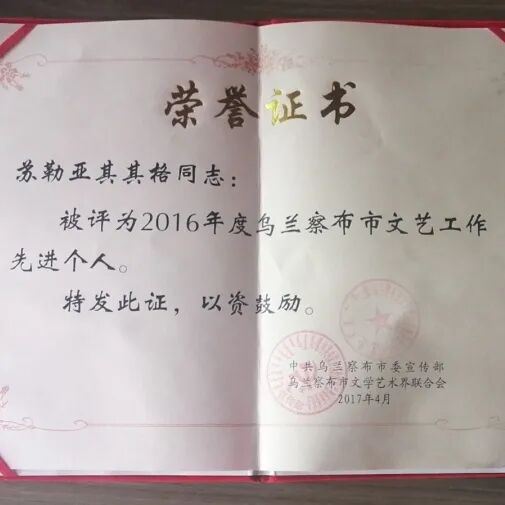 荣誉证书
苏勒亚其其格同志：
被评为2016年度乌兰察布市文艺工作
先进个人。
特发此证，以资鼓励。
中共乌兰察布市委宣传部
乌兰察布市文学艺术界联合会
2017年4月